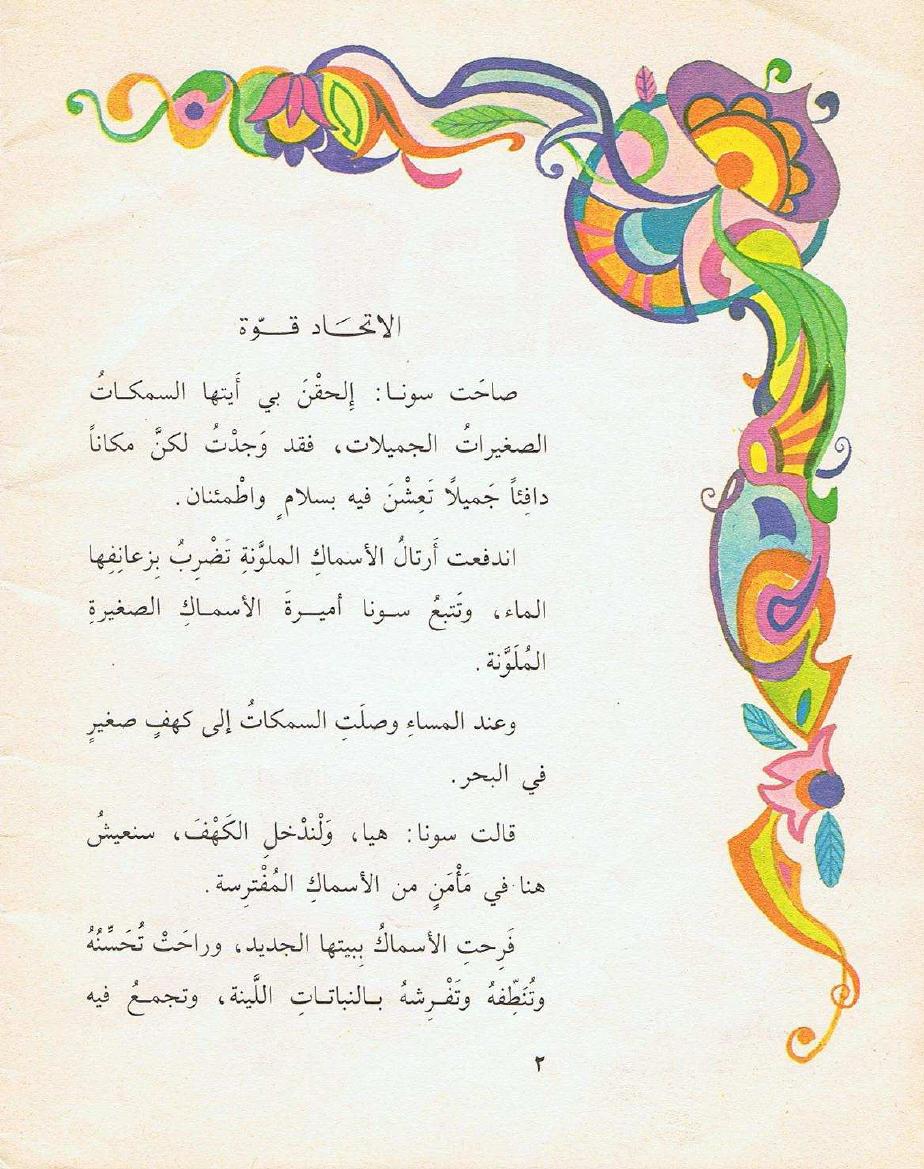 الاتحَاد قوّة
صاحَت سونا: إِلحقْنَ بي أَيتها السمكاتُ
الصغيراتُ الجميلات، فقد وَجدْتُ لكنَّ مكاناً
دافِئاً جَميلًا تَعِشْنَ فيه بسلامٍ واطْمئنان.
اندفعت أَرتالُ الأسماكِ الملوَّنةِ تَضْرِبُ بِزعانِفِها
الماء، وتَتبعُ سونا أميرةَ الأسماكِ الصغيرةِ
المُلَوَّنة.
وعند المساءِ وصلَتِ السمكاتُ إلى كهفٍ صغيرٍ
في البحر.
قالت سونا: هيا، وَلْندْخلِ الكَهْفَ، سنعيشُ
هنا في مَأْمَنٍ من الأسماكِ المُفْترِسة.
فَرِحتِ الأسماكُ بِبيتها الجديد، وراحَتْ تُحَسِّنُهُ
وتُنَظِّفهُ وتَفْرِشهُ بالنباتاتِ اللَّينة، وتجمعُ فيه
٢